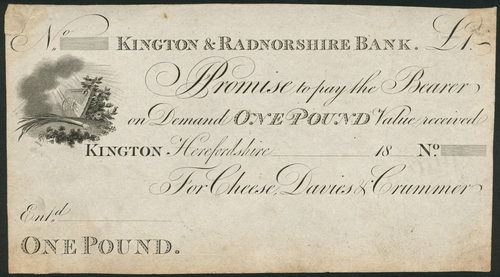 No KINGTON & RADNORSHIRE BANK. £1.-
I Promise to pay the Bearer
on Demand ONE POUND Value received
KINGTON Herefordshire 18 No.
For Cheese, Davies & Crummer
Ent.d
ONE POUND.